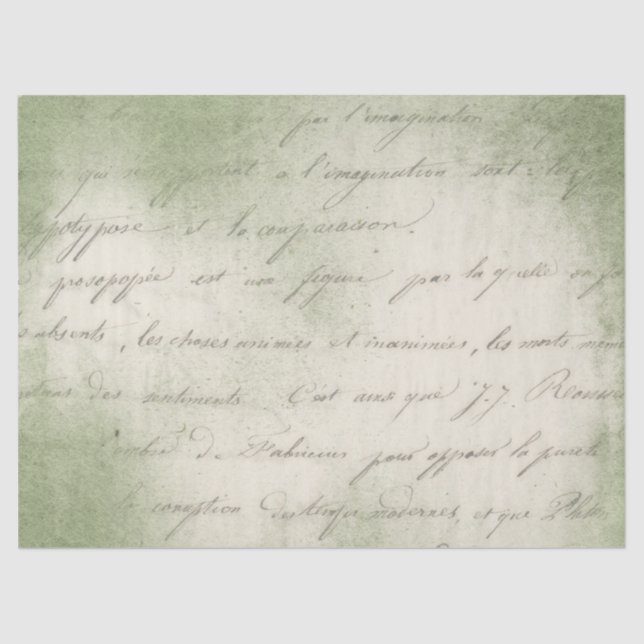 par l'imagination
qui se rapportent a l'imagination sont : la
ypotypose et la comparaison.
prosopopée est une figure par laquelle on fa
absents, les choses animées et inanimées, les morts meme
des sentiments. C'est ainsi que J. J. Rouss
ombre de Fabricius pour opposer la pureté
la corruption des temps modernes, et que